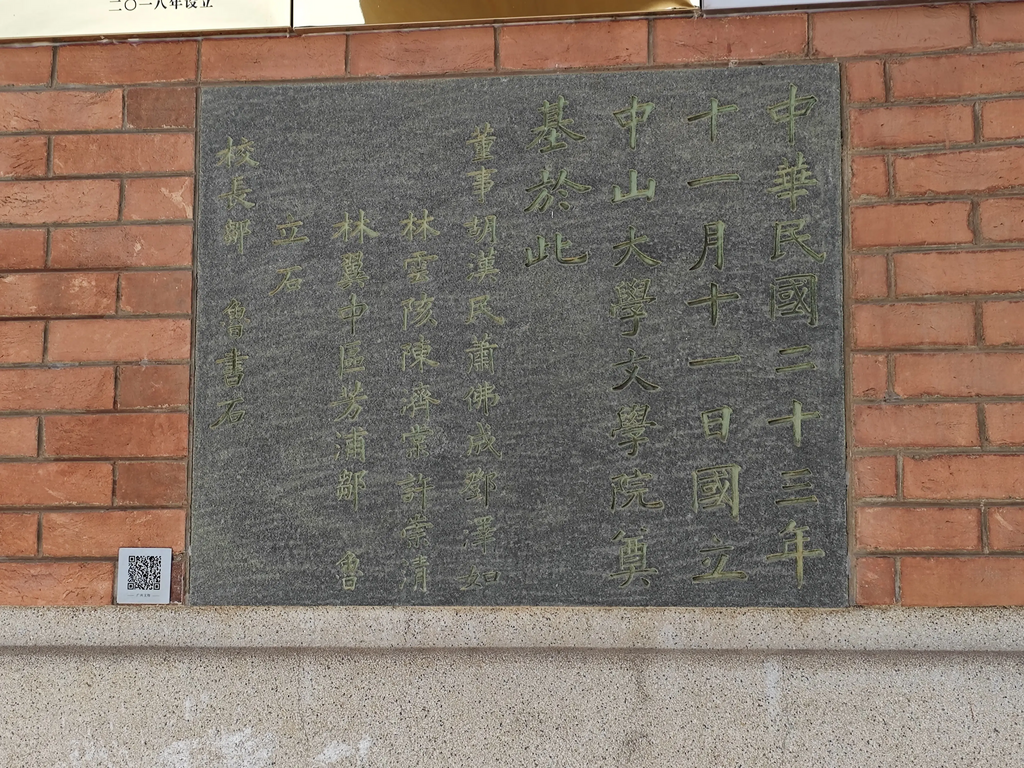 二〇一八年设立
中華民國二十三年
十一月十一日國立
中山大學文學院奠
基於此
董事胡漢民蕭佛成鄧澤如
林雲陔陳濟棠許崇清
林翼中區芳浦鄒 魯
立石
校長鄒 魯書石